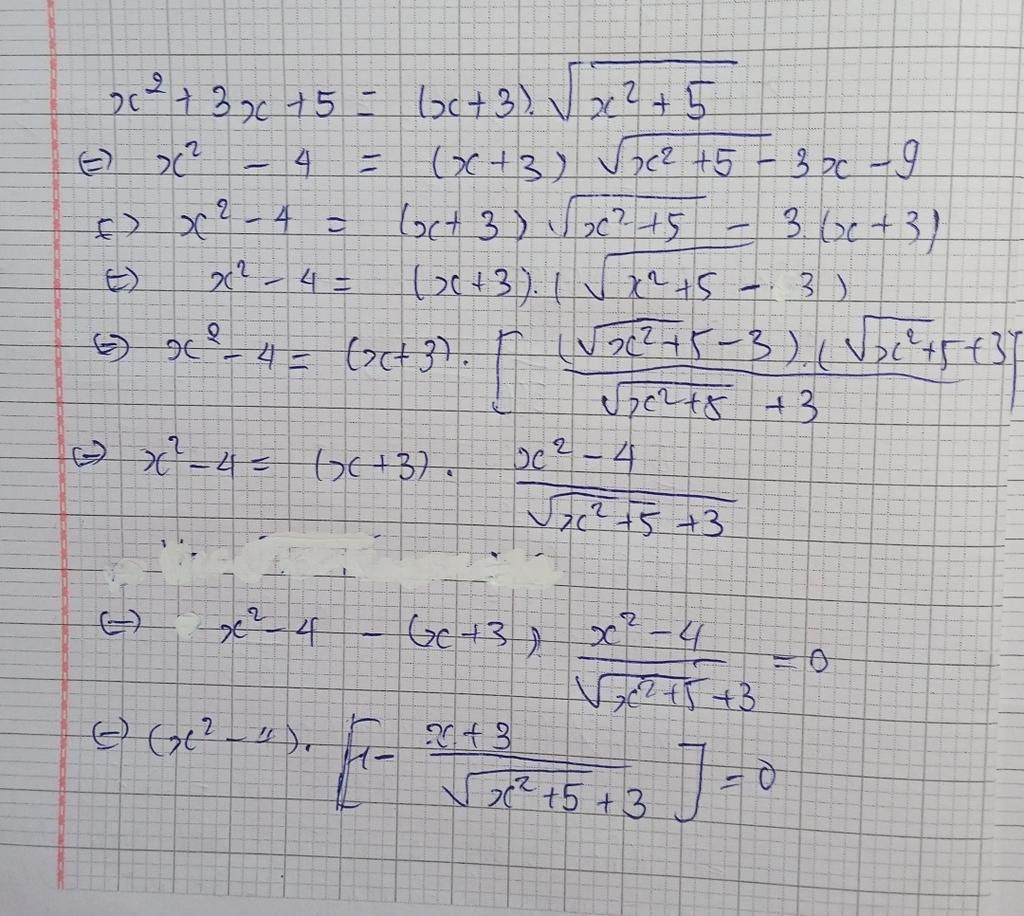 x² + 3x + 5 = (x+3).√(x² + 5)
⇔ x² - 4 = (x+3) √(x² + 5) - 3x - 9
⇔ x² - 4 = (x+3) √(x² + 5) - 3.(x+3)
⇔ x² - 4 = (x+3).(√(x² + 5) - 3)
⇔ x² - 4 = (x+3).[((√(x² + 5) - 3).(√(x² + 5) + 3))/(√(x² + 5) + 3)]
⇔ x² - 4 = (x+3). (x² - 4)/(√(x² + 5) + 3)
⇔ x² - 4 - (x+3). (x² - 4)/(√(x² + 5) + 3) = 0
⇔ (x² - 4).[1 - (x+3)/(√(x² + 5) + 3)] = 0